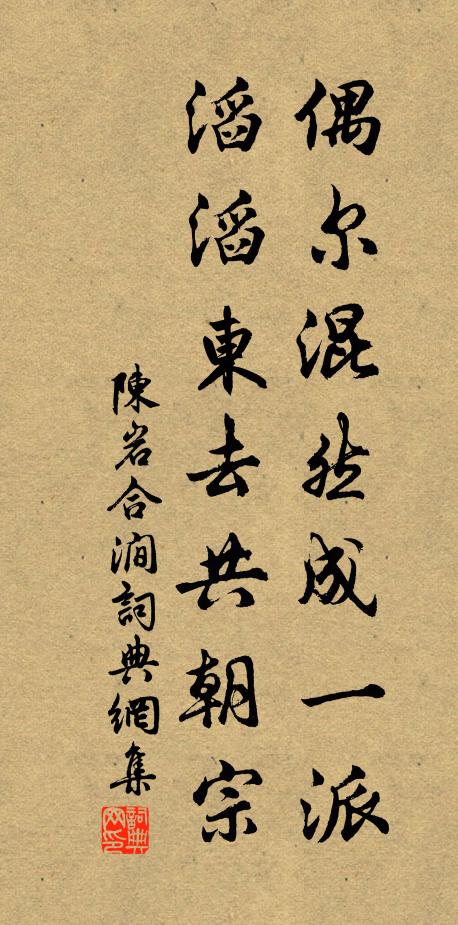 偶尔混然成一派
滔滔東去共朝宗
陳岩合澗詞典網集
詞典
网印